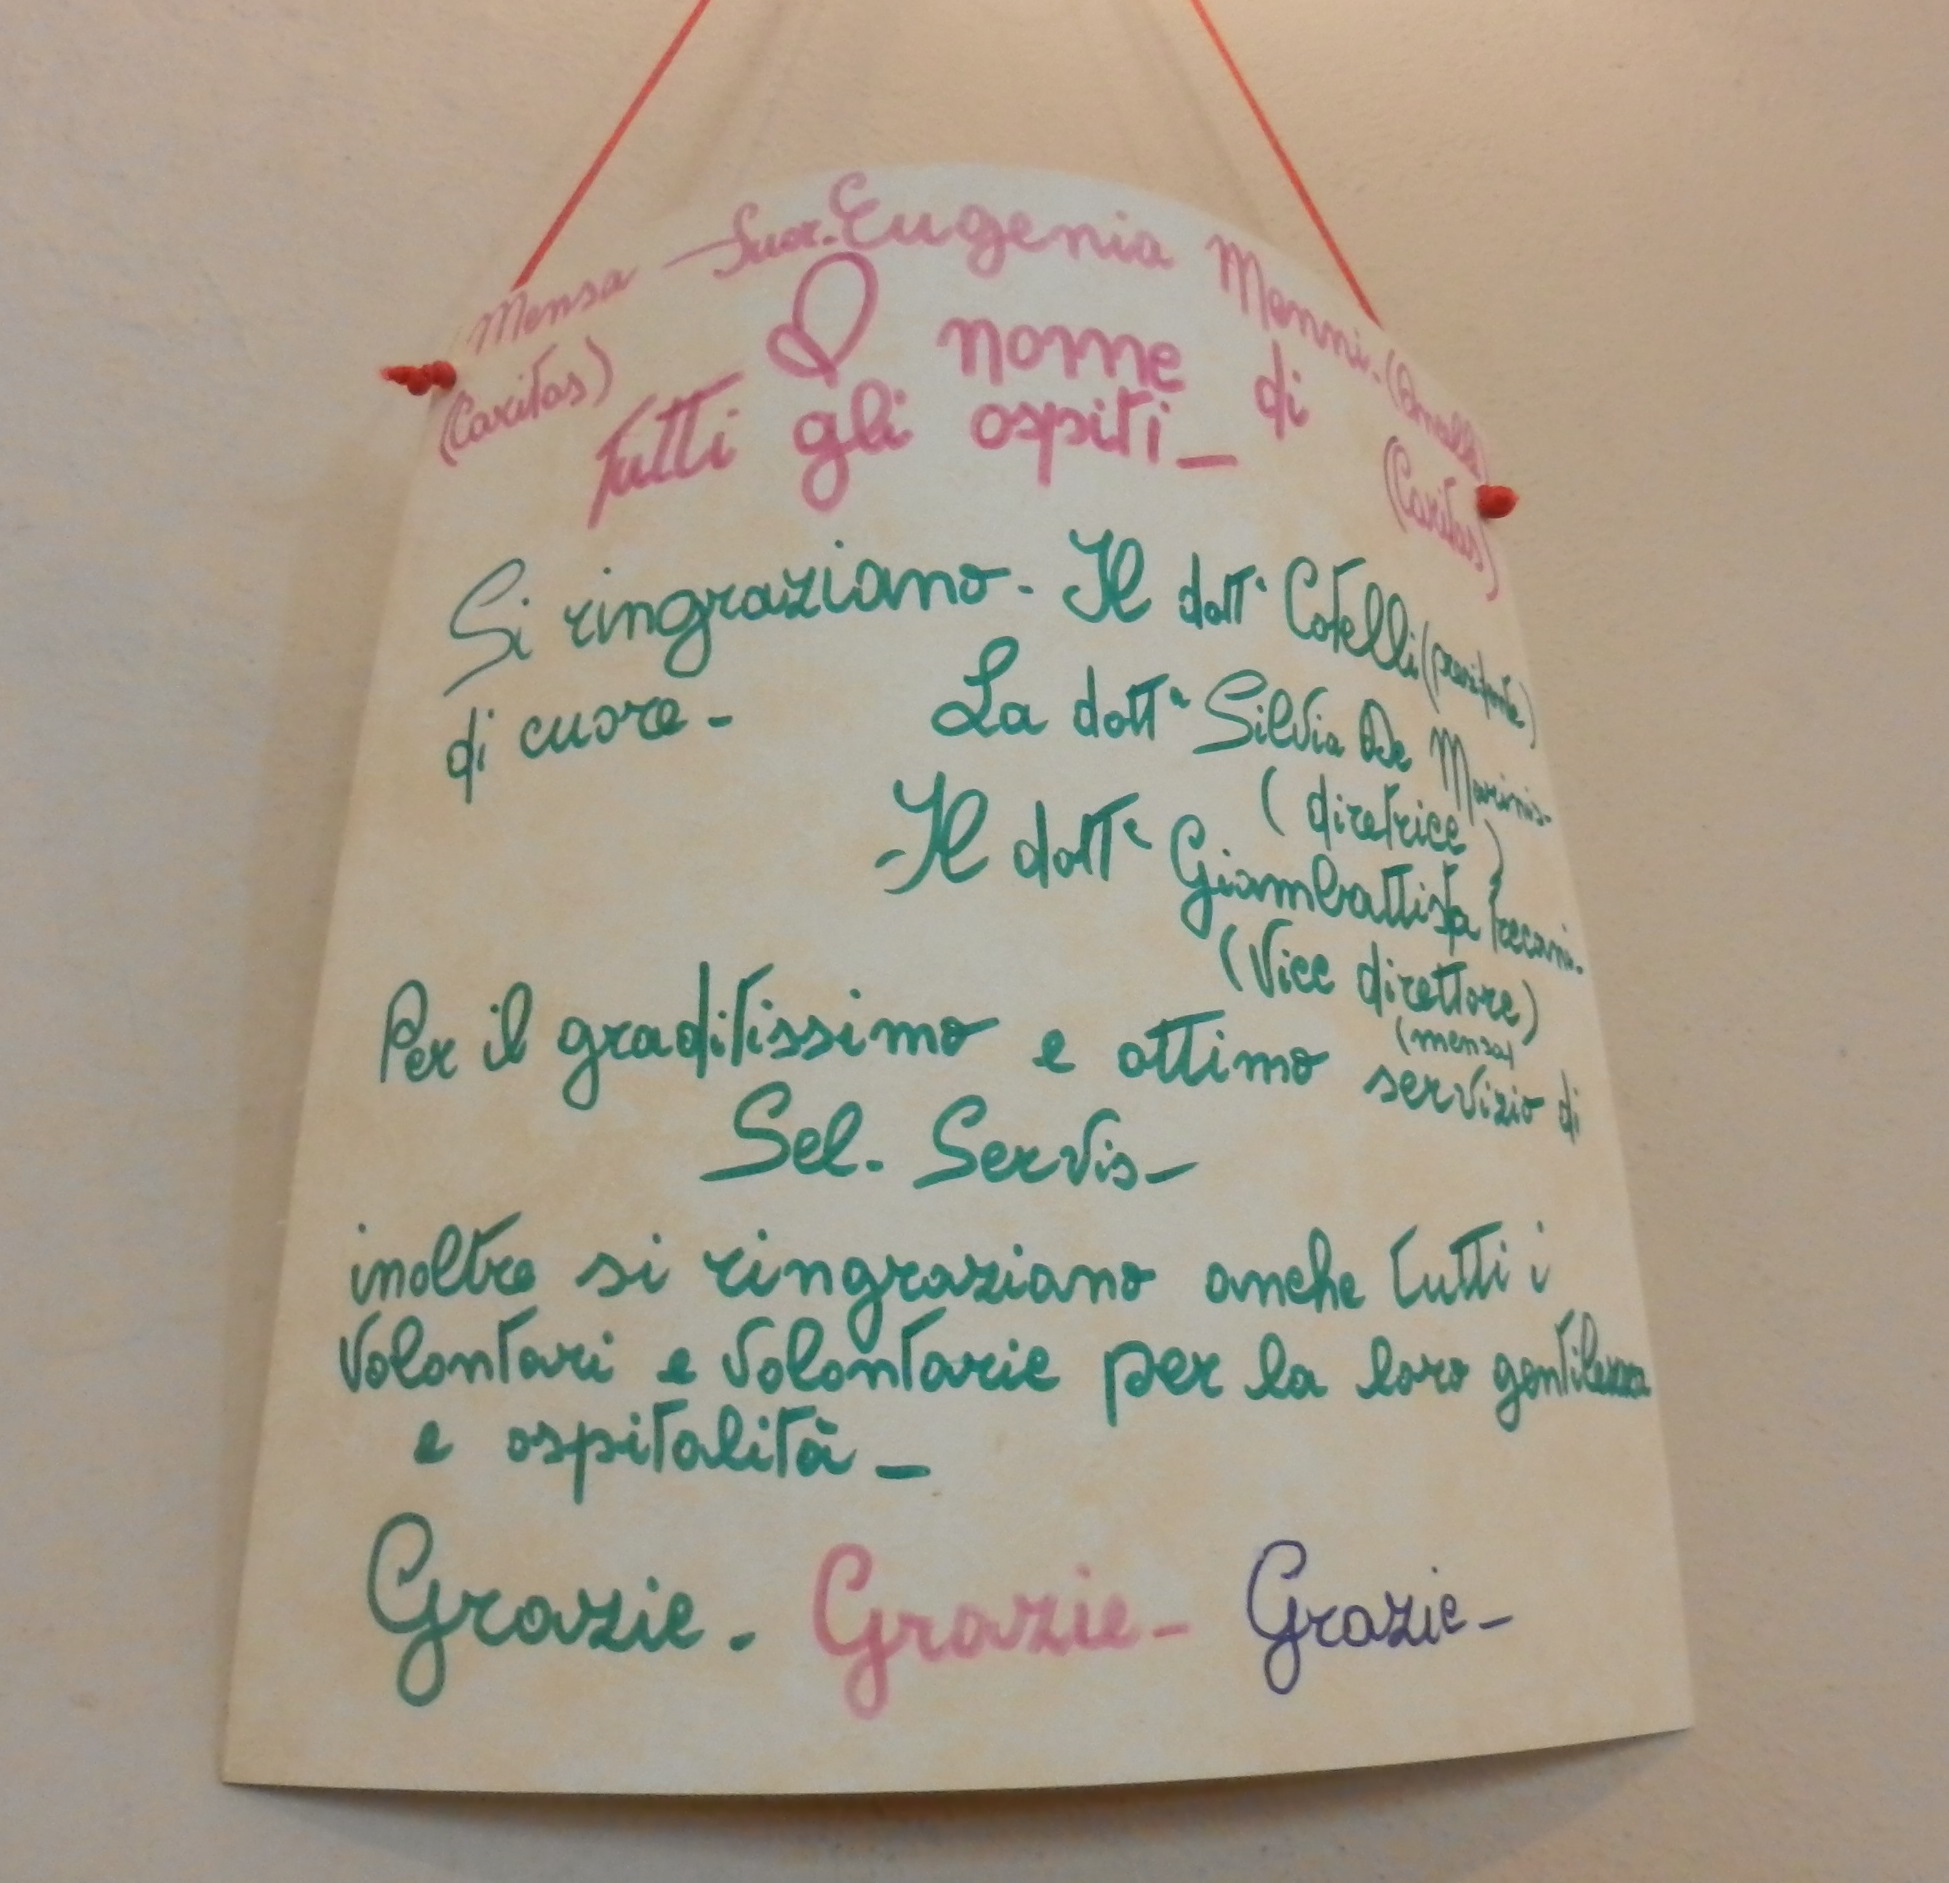 Mensa - Suor. Eugenia Menni. (Ancelle)
(Caritas)
(Caritas)
A nome di
tutti gli ospiti -
Si ringraziano - Il dott. Cotelli (presidente)
di cuore - La dott.a Silvia De Marinis -
(diretrice)
- Il dott. Giambattista Treccani.
(Vice direttore)
(mensa)
Per il graditissimo e ottimo servizio di
Sel. Servis -
inoltre si ringraziano anche tutti i
volontari e volontarie per la loro gentilezza
e ospitalità -
Grazie. Grazie - Grazie -